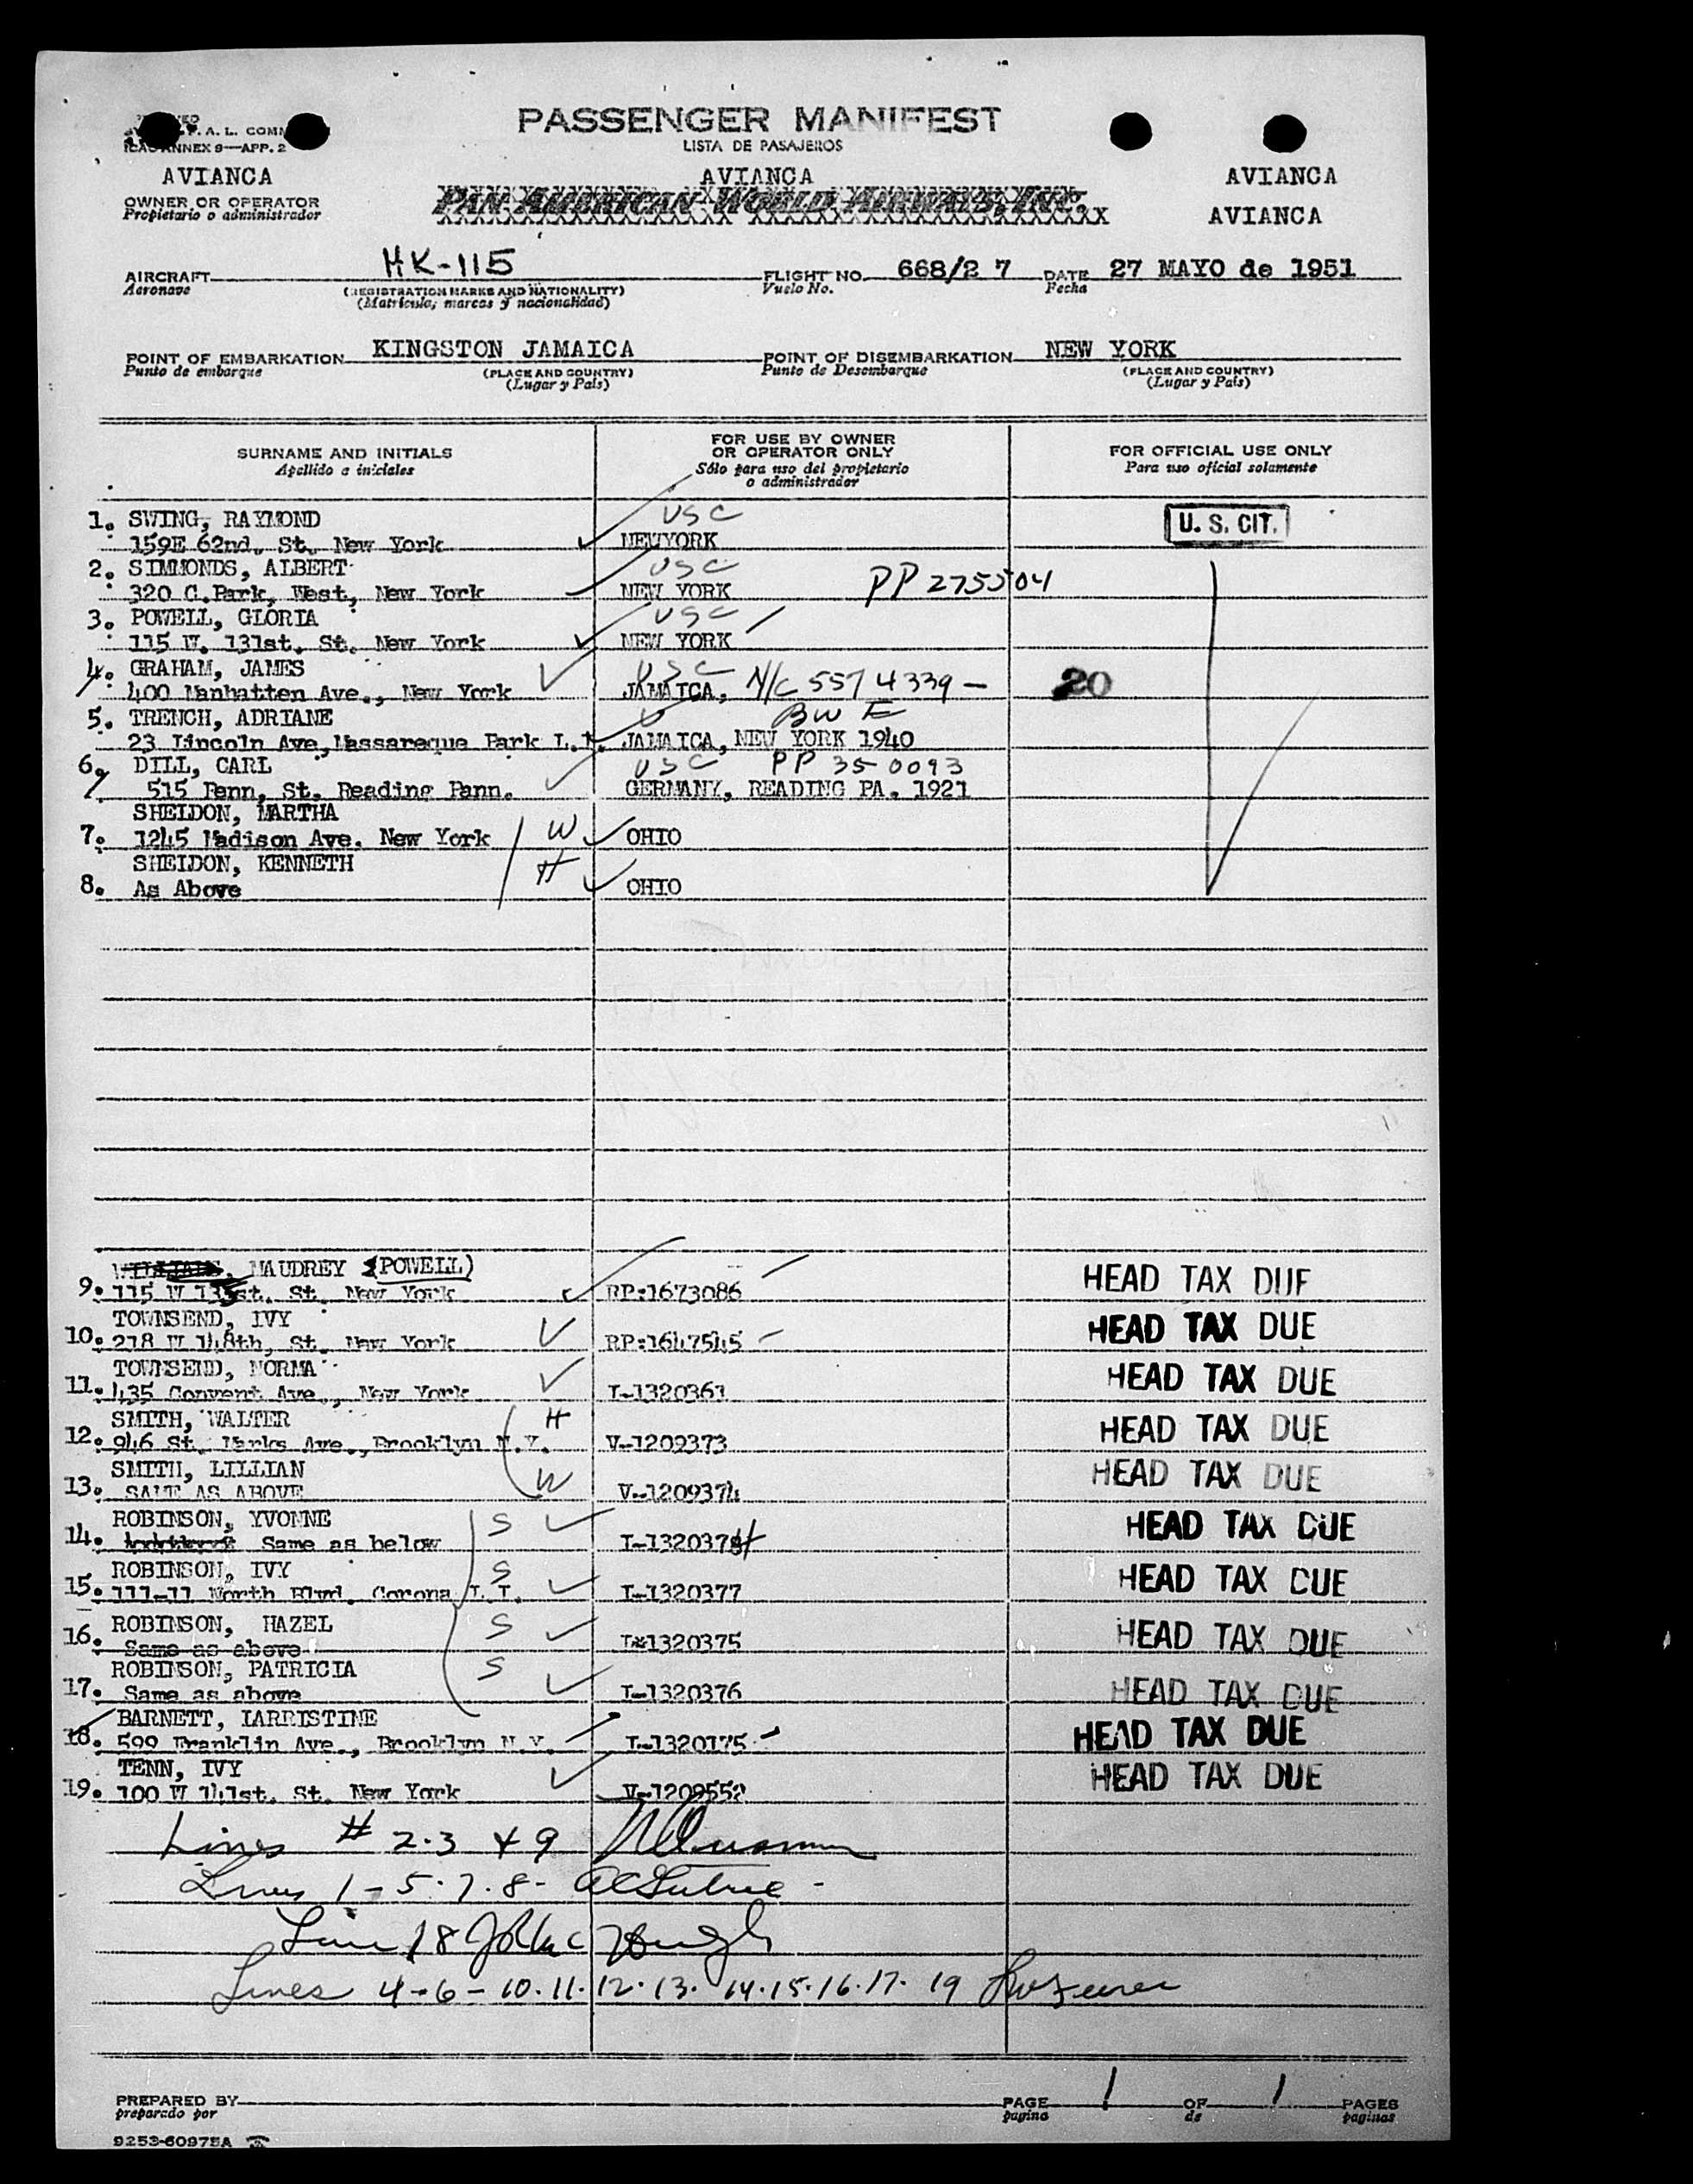 F. A. L. COMM
ICAO ANNEX 9—APP. 2
PASSENGER MANIFEST
LISTA DE PASAJEROS
AVIANCA AVIANCA AVIANCA
OWNER OR OPERATOR PAN AMERICAN WORLD AIRWAYS, INC. AVIANCA
Propietario o administrador
AIRCRAFT HK-115 FLIGHT NO. 668/2 7 DATE 27 MAYO de 1951
Aeronave (REGISTRATION MARKS AND NATIONALITY) Vuelo No. Fecha
(Matrícula, marcas y nacionalidad)
POINT OF EMBARKATION KINGSTON JAMAICA POINT OF DISEMBARKATION NEW YORK
Punto de embarque (PLACE AND COUNTRY) Punto de Desembarque (PLACE AND COUNTRY)
(Lugar y País) (Lugar y País)
SURNAME AND INITIALS FOR USE BY OWNER OR OPERATOR ONLY FOR OFFICIAL USE ONLY
Apellido a iniciales Sólo para uso del propietario o administrador Para uso oficial solamente
1. SWING, RAYMOND USC U. S. CIT.
159E 62nd. St. New York NEWYORK
2. SIMMONDS, ALBERT USC
320 C.Park, West, New York NEW YORK PP 275504
3. POWELL, GLORIA USC
115 W. 131st. St. New York NEW YORK
4. GRAHAM, JAMES USC
400 Manhatten Ave., New York JAMAICA, N/C 5574339 - 20
5. TRENCH, ADRIANE BWE
23 Lincoln Ave,Massareque Park L.I. JAMAICA, NEW YORK 1940
6. DILL, CARL USC PP 350093
515 Penn, St. Reading Penn. GERMANY, READING PA. 1921
SHELDON, MARTHA
7. 1245 Madison Ave. New York W OHIO
SHELDON, KENNETH H
8. As Above OHIO
MAUDREY (POWELL)
9. 115 W 131st. St. New York RP:1673086 HEAD TAX DUE
TOWNSEND, IVY
10. 218 W 148th, St. New York RP:1647545 HEAD TAX DUE
TOWNSEND, NORMA
11. 435 Convent Ave., New York I-1320361 HEAD TAX DUE
SMITH, WALTER H
12. 946 St. Marks Ave.,Brooklyn N.Y. V-1209373 HEAD TAX DUE
SMITH, LILLIAN W
13. SAME AS ABOVE V-1209374 HEAD TAX DUE
ROBINSON, YVONNE S
14. Same as below I-1320374 HEAD TAX DUE
ROBINSON, IVY S
15. 111-11 North Blvd. Corona L.I. I-1320377 HEAD TAX DUE
ROBINSON, HAZEL S
16. Same as above I*1320375 HEAD TAX DUE
ROBINSON, PATRICIA S
17. Same as above I-1320376 HEAD TAX DUE
BARNETT, IARRISTINE
18. 599 Franklin Ave., Brooklyn N.Y. I-1320175 HEAD TAX DUE
TENN, IVY
19. 100 W 141st. St. New York V-1209552 HEAD TAX DUE
Lines # 2.3 & 9
Lines 1-5.7.8-
Line 18
Lines 4-6-10.11.12.13.14.15.16.17.19
PREPARED BY PAGE 1 OF 1 PAGES
preparado por pagina de paginas
9253-60975A